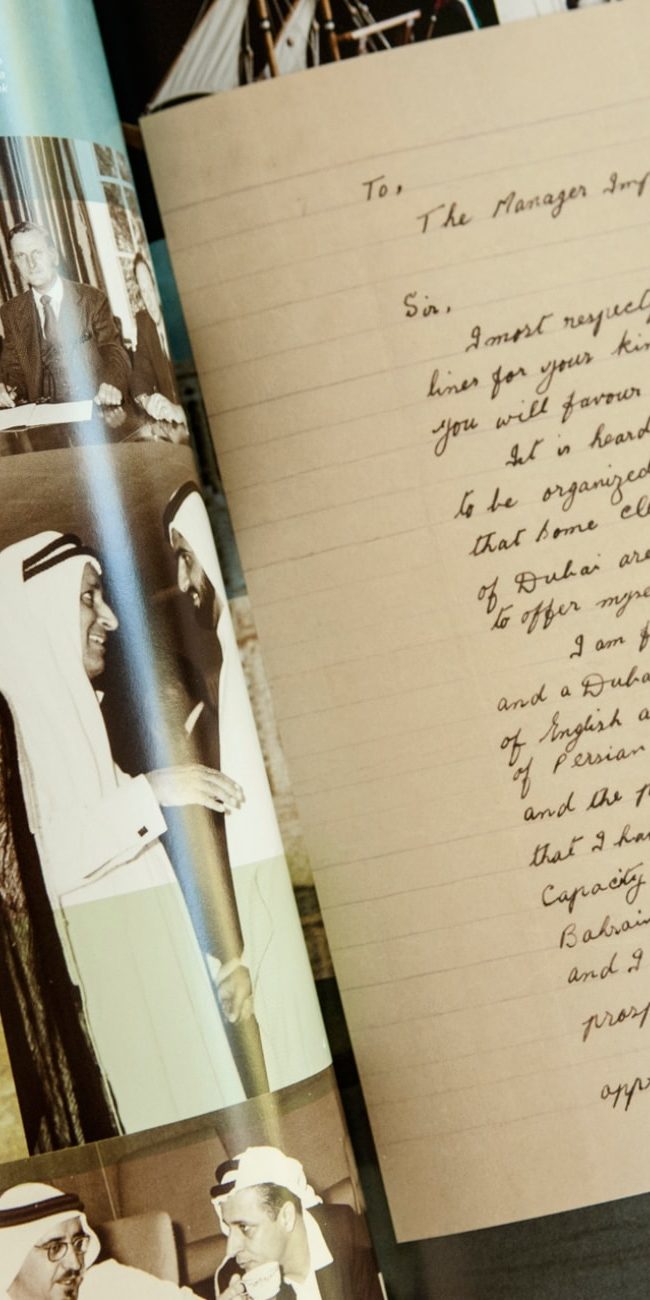 To,
The Manager Imp
Sir,
I most respect
lines for your kin
you will favour
It is heard
to be organized
that some cle
of Dubai are
to offer myse
I am f
and a Duba
of English a
of Persian
and the p
that I ha
Capacity
Bahrain
and I
prosp
appr